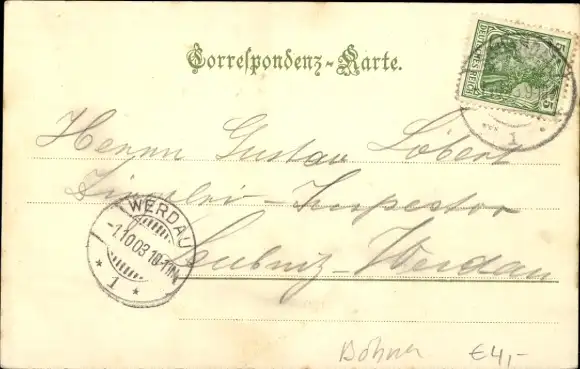 Correspondenz-Karte.
DEUTSCHES REICH
5
Herrn Gustav Löbert
Inspector
Leubnitz-Werdau
WERDAU
-1.10.03.10-11N.
* 1 *
1
Böhner €4,-